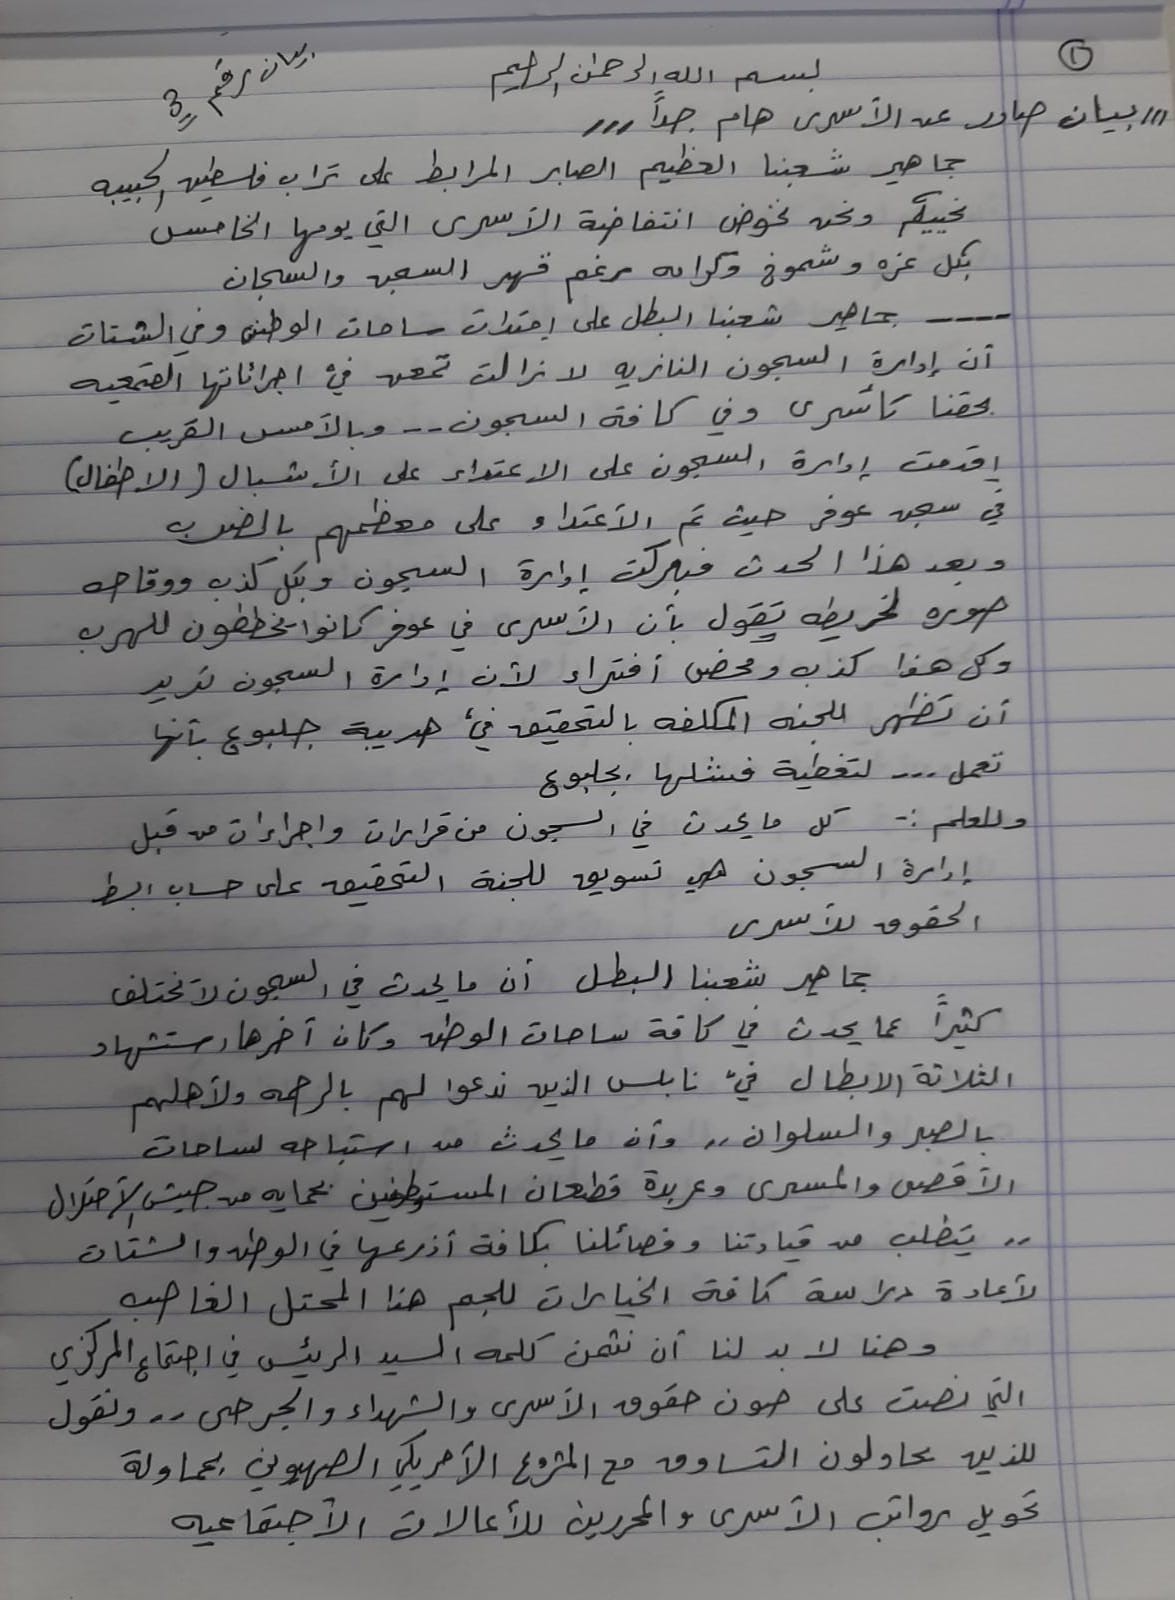 ①
بيان رقم 3
بسم الله الرحمن الرحيم
,,, بيان صادر عن الأسرى هام جداً ,,,
جماهير شعبنا العظيم الصابر المرابط على تراب فلسطين الحبيبه
نحييكم ونحن نخوض انتفاضة الأسرى التي يومها الخامس
بكل عزه وشموخ وكرامه رغم قهر السجن والسجان
---- جماهير شعبنا البطل على امتدات ساحات الوطن وفي الشتات
أن إدارة السجون النازيه لا زالت تمعن في اجرائاتها القمعيه
بحقنا كأسرى وفي كافة السجون -- وبالأمس القريب
اقدمت إدارة السجون على الاعتداء على الأشبال (الاطفال)
في سجن عوفر حيث تم الأعتداء على معظمهم بالضرب
وبعد هذا الحدث فبركت إدارة السجون وبكل كذب ووقاحه
صوره لخريطه تقول بأن الأسرى في عوفر كانوا يخططون للهرب
وكل هذا كذب ومحض أفتراء لأن إدارة السجون تريد
أن تظهر للجنه المكلفه بالتحقيق في هريبة جلبوع بأنها
تعمل --- لتغطية فشلها بجلبوع
وللعلم :- كل ما يحدث في السجون من قرارات واجراءات من قبل
إدارة السجون هي تسويق للجنة التحقيق على حساب ابسط
الحقوق للأسرى
جماهير شعبنا البطل أن ما يحدث في السجون لا يختلف
كثيراً عما يحدث في كافة ساحات الوطن وكان أخرها استشهاد
الثلاثة الابطال في نابلس الذين ندعوا لهم بالرحمه ولأهلهم
بالصبر والسلوان ,, وأن ما يحدث من استباحه لساحات
الأقصى والمسرى وعربدة قطعان المستوطنين بحمايه من جيش الإحتلال
,, يتطلب من قيادتنا وفصائلنا بكافة أذرعها في الوطن والشتات
لأعادة دراسة كافة الخيارات للجم هذا المحتل الغاصب
وهنا لا بد لنا أن نثمن كلمه السيد الرئيس في اجتماع المركزي
التي نصت على صون حقوق الأسرى والشهداء والجرحى ,, ونقول
للذين يحاولون التساوق مع المشروع الأمريكي الصهيوني بمحاولة
تحويل رواتب الأسرى والمحررين للأعالات الأجتماعيه